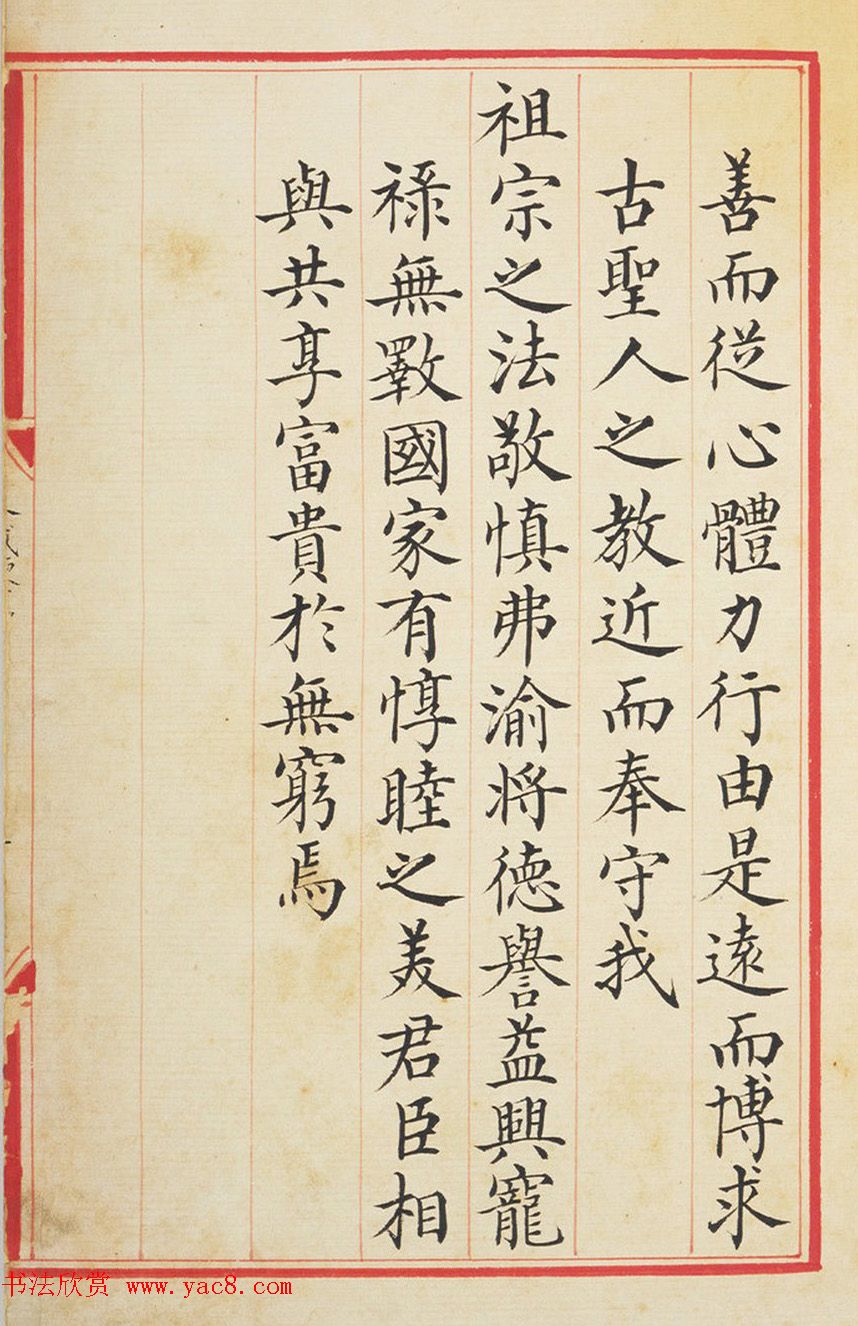 善而從心體力行由是遠而博求
古聖人之教近而奉守我
祖宗之法敬慎弗渝將德譽益興寵
祿無斁國家有惇睦之美君臣相
與共享富貴於無窮焉
书法欣赏 www.yac8.com